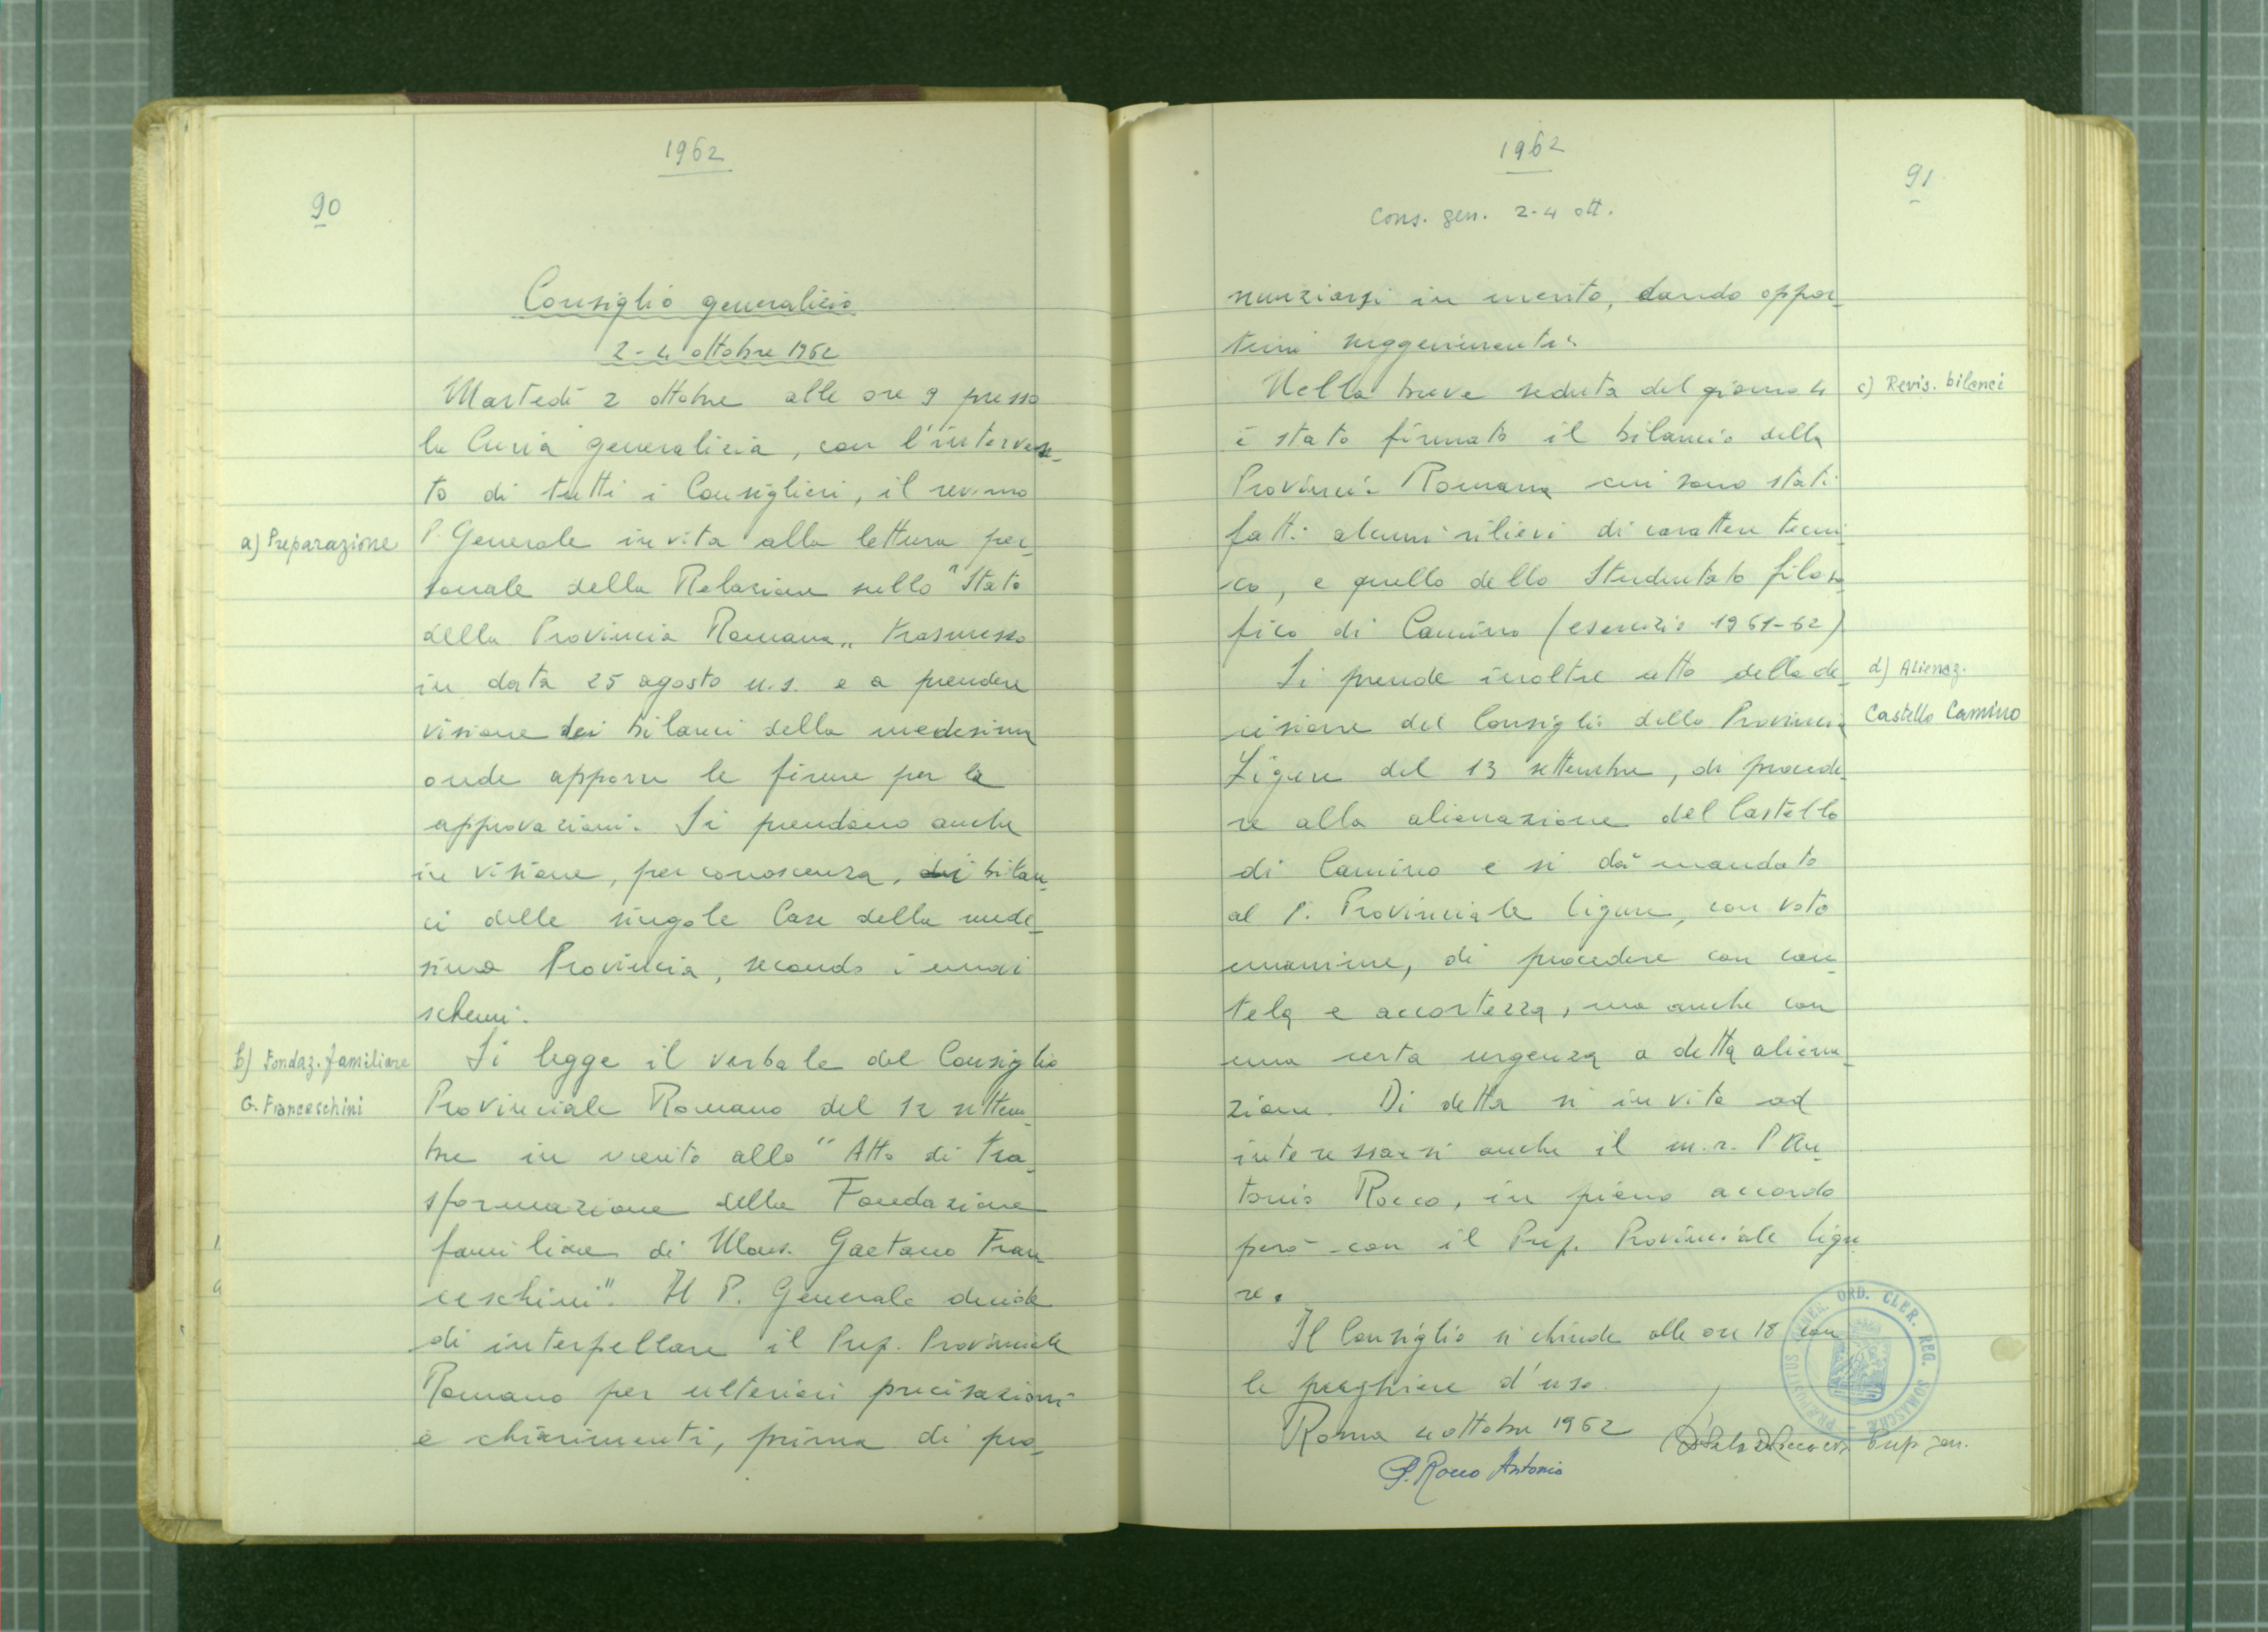 1962
90
Consiglio generalizio
2-4 ottobre 1962
Martedì 2 ottobre alle ore 9 presso
la Curia generalizia, con l'interven-
to di tutti i Consiglieri, il rev.mo
a) Preparazione
P. Generale invita alla lettura per-
sonale della Relazione sullo "Stato
della Provincia Romana" trasmesso
in data 25 agosto u.s. e a prendere
visione dei bilanci della medesima
onde apporre le firme per le
approvazioni. Si prendono anche
in visione, per conoscenza, dei bilan-
ci delle singole Case della mede-
sima Provincia, secondo i nuovi
schemi.
b) Fondaz. familiare
G. Franceschini
Si legge il verbale del Consiglio
Provinciale Romano del 12 settem-
bre in merito allo "Atto di tra-
sformazione della Fondazione
familiare di Mons. Gaetano Fran-
ceschini". Il P. Generale decide
di interpellare il Prep. Provinciale
Romano per ulteriori precisazioni
e chiarimenti, prima di pro-
1962
91
Cons. gen. 2-4 ott.
nunziarsi in merito, dando oppor-
tuni suggerimenti.
Nella breve seduta del giorno 4
c) Revis. bilanci
è stato firmato il bilancio della
Provincia Romana cui sono stati
fatti alcuni rilievi di carattere tecni-
co, e quello dello Studentato filoso-
fico di Camino (esercizio 1961-62)
Si prende inoltre atto della de-
d) Alienaz.
Castello Camino
cisione del Consiglio della Provincia
Ligure del 13 settembre, di procede-
re alla alienazione del Castello
di Camino e si dà mandato
al P. Provinciale ligure, con voto
unanime, di procedere con cau-
tela e accortezza, ma anche con
una certa urgenza a detta aliena-
zione. Di detta si invita ad
interessarsi anche il m.r. P. An-
tonio Rocco, in pieno accordo
però con il Prep. Provinciale ligu-
re.
Il Consiglio si chiude alle ore 18 con
le preghiere d'uso.
Roma 4 ottobre 1962
Prep. gen.
P. Rocco Antonio
PRÆPOSITUS GENER. ORD. CLER. REG. SOMASCHÆ